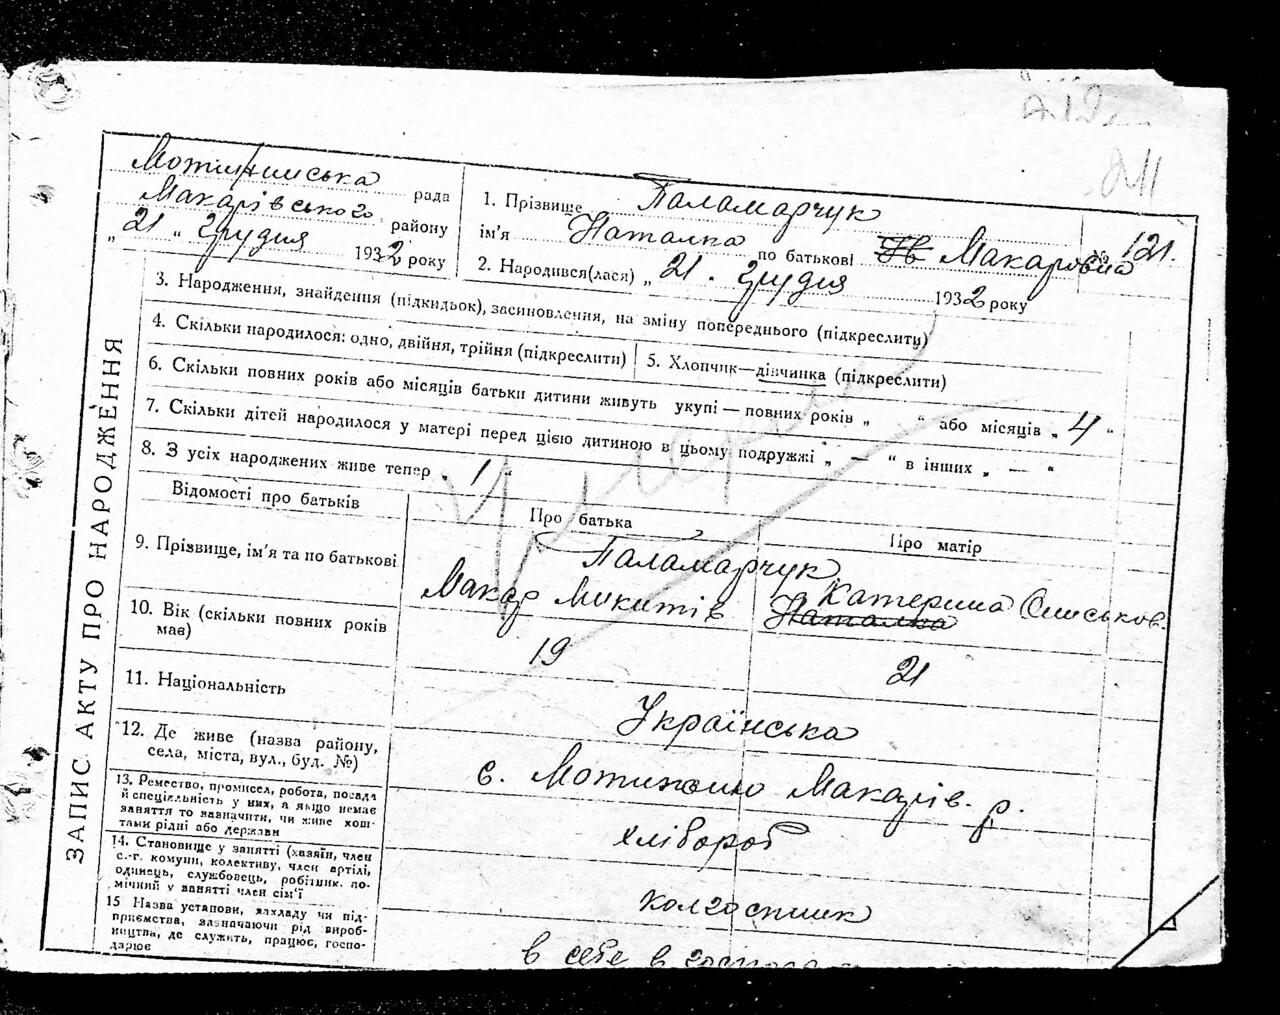 211
Мотижинська рада
Макарівського району
„21“ грудня 1932 року
1. Прізвище Паламарчук
ім'я Наталка по батькові Ів Макаровна
№ 121.
2. Народився(лася) „21. грудня 1932 року
ЗАПИС АКТУ ПРО НАРОДЖЕННЯ
3. Народження, знайдення (підкидьок), засиновлення, на зміну попереднього (підкреслити)
4. Скільки народилося: одно, двійня, трійня (підкреслити)
5. Хлопчик—дівчинка (підкреслити)
6. Скільки повних років або місяців батьки дитини живуть укупі — повних років „ “ або місяців „4“
7. Скільки дітей народилося у матері перед цією дитиною в цьому подружжі „ — “ в інших „ — “
8. З усіх народжених живе тепер „1“
Умерла
Відомості про батьків
Про батька
Про матір
9. Прізвище, ім'я та по батькові
Паламарчук
Макар Микитів
Катерина
Наталка
10. Вік (скільки повних років має)
19
21
11. Національність
Українська
12. Де живе (назва району,
села, міста, вул., буд. №)
с. Мотижино Макарів. р.
13. Ремество, промисел, робота, посада
й спеціяльність у них, а якщо немає
заняття то зазначити, чи живе кош-
тами рідні або держави
хлібороб
14. Становище у занятті (хазяїн, член
с.-г. комуни, колективу, член артілі,
одинець, службовець, робітник, по-
мічний у занятті член сім'ї
колгоспник
15 Назва установи, закладу чи під-
приємства, зазначаючи рід вироб-
ництва, де служить, працює, госпо-
дарює
в себе в